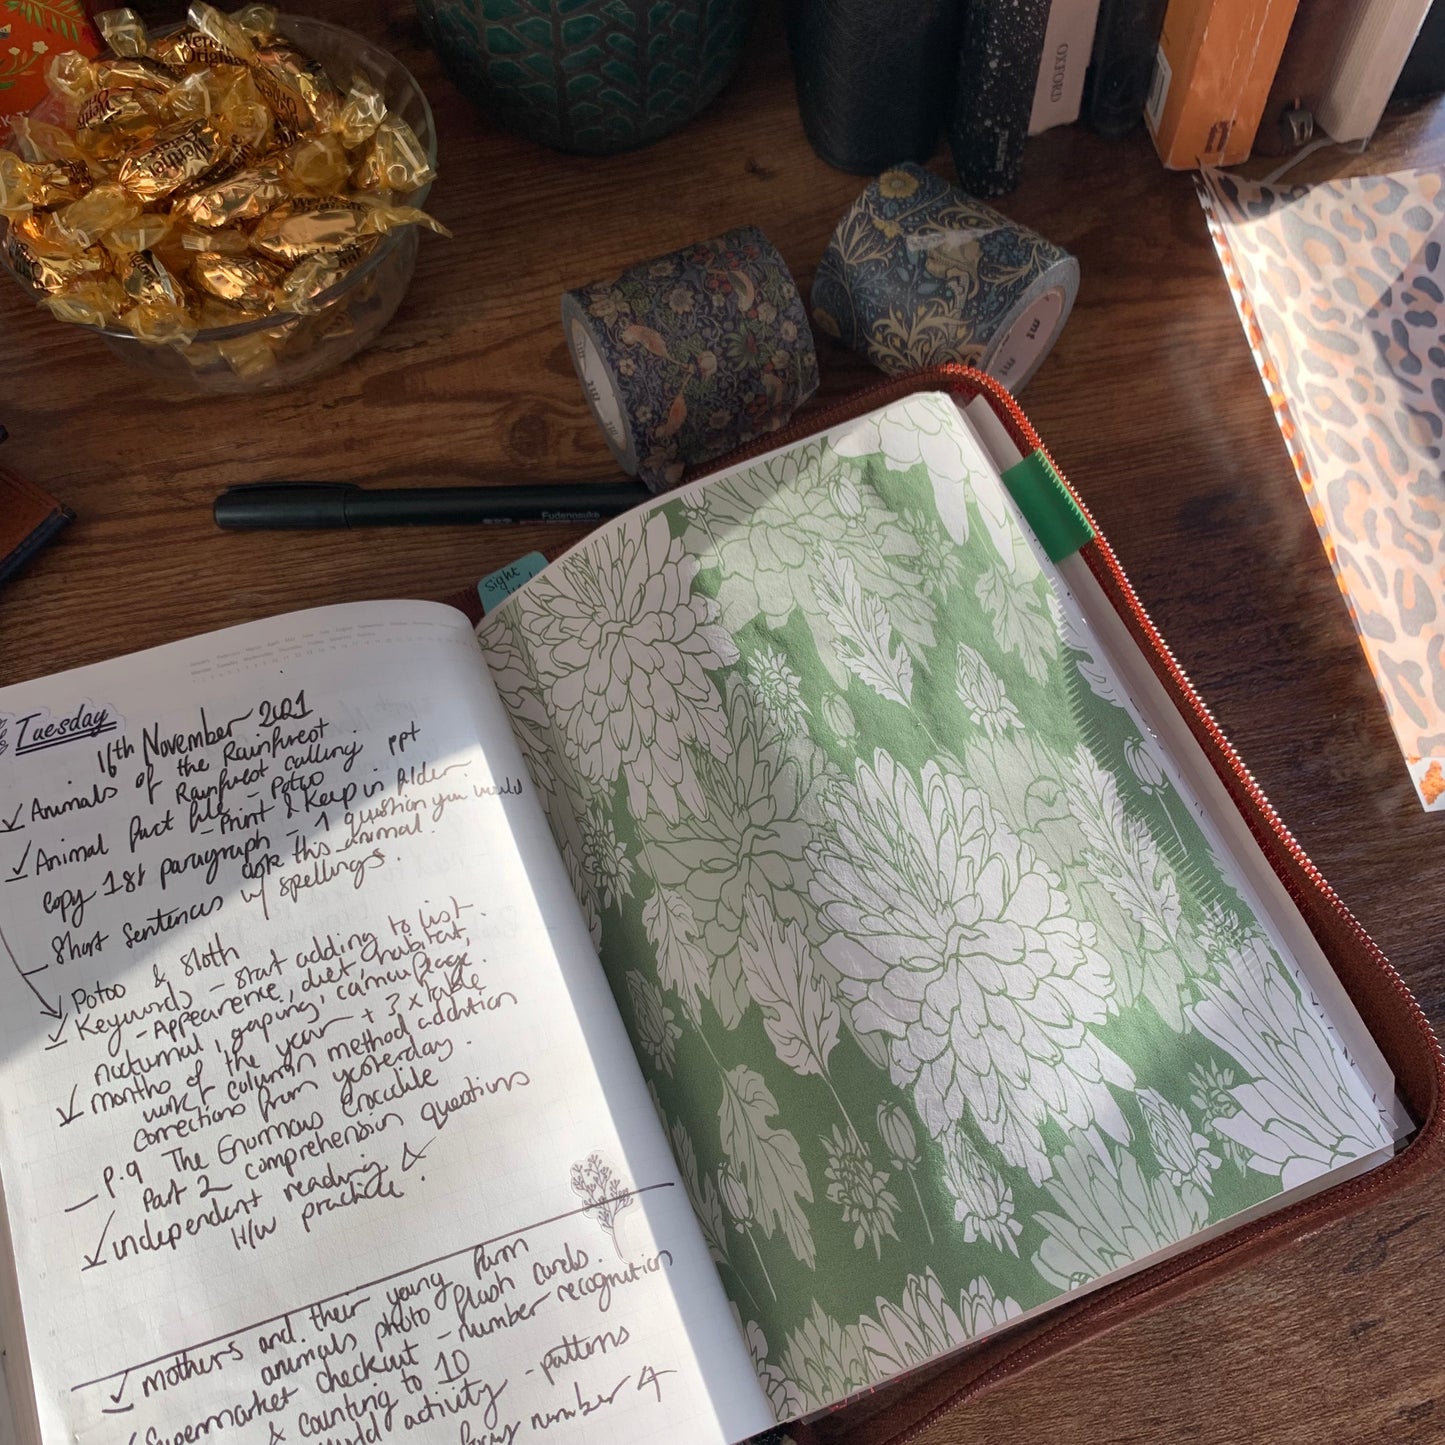 Werther's Original
OXFORD
mt
mt
mt
Fudenosuke
Sight
Tuesday
16th November 2021
✓ Animals of the Rainforest
Rainforest calling ppt
✓ Animal fact file - Potoo
- Print & keep in folder.
copy 1st paragraph - 1 question you would
ask this animal.
Short sentences w/ spellings.
✓ Potoo & Sloth
✓ Keywords - start adding to list.
- Appearence, diet, habitat,
nocturnal, gaping, camouflage.
✓ months of the year + 3 x table
work + column method addition
corrections from yesterday.
- p.9 The Enormous Crocodile
Part 2 comprehension questions
✓ independent reading &
H/W practice.
✓ mothers and their young farm
animals photo flash cards.
✓ Supermarket checkout - number recognition
& counting to 10
activity - patterns
number 4